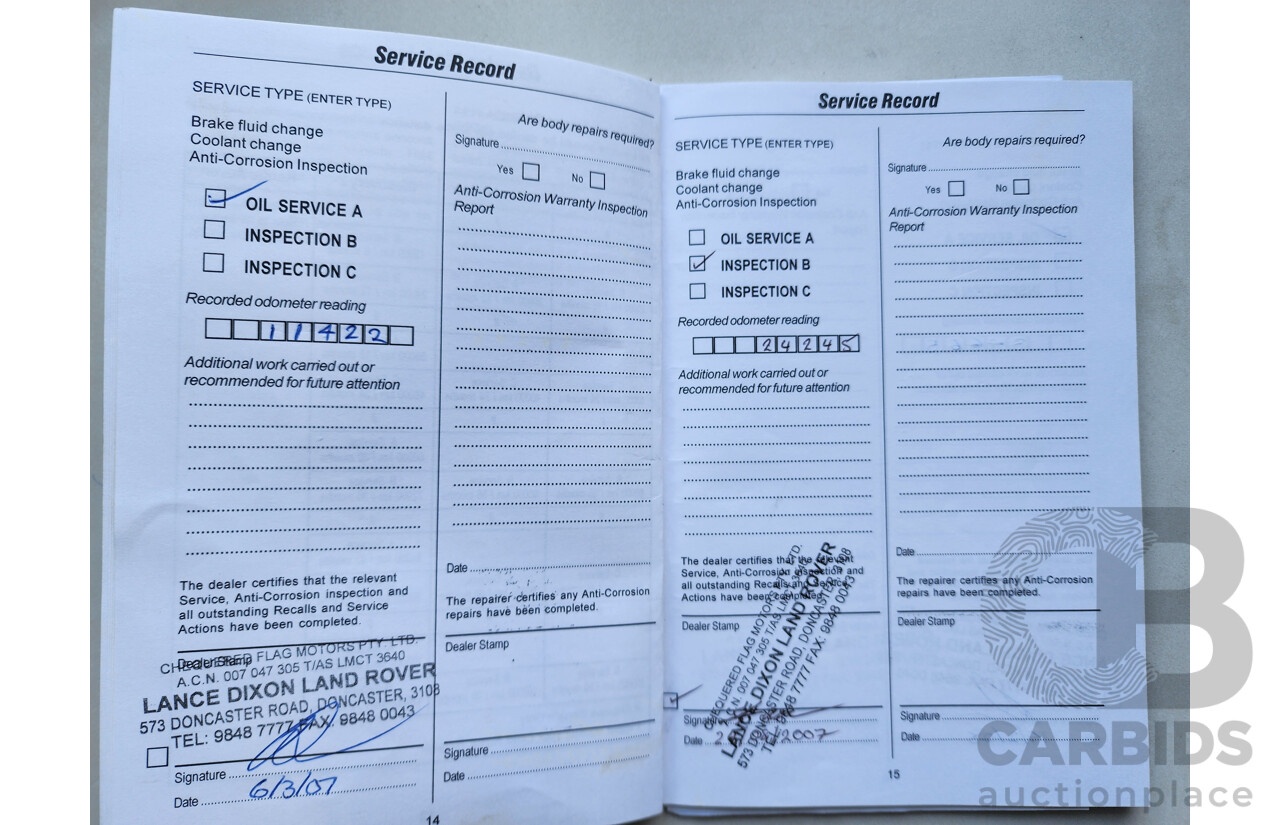 Service Record
SERVICE TYPE (ENTER TYPE)
Brake fluid change
Coolant change
Anti-Corrosion Inspection
OIL SERVICE A
INSPECTION B
INSPECTION C
Recorded odometer reading
11422
Additional work carried out or
recommended for future attention
The dealer certifies that the relevant
Service, Anti-Corrosion inspection and
all outstanding Recalls and Service
Actions have been completed.
Dealer Stamp
CHEQUERED FLAG MOTORS PTY. LTD.
A.C.N. 007 047 305 T/AS LMCT 3640
LANCE DIXON LAND ROVER
573 DONCASTER ROAD, DONCASTER, 3108
TEL: 9848 7777 FAX: 9848 0043
Signature
Date 6/3/07
Are body repairs required?
Signature
Yes No
Anti-Corrosion Warranty Inspection
Report
Date
The repairer certifies any Anti-Corrosion
repairs have been completed.
Dealer Stamp
Signature
Date
14
Service Record
SERVICE TYPE (ENTER TYPE)
Brake fluid change
Coolant change
Anti-Corrosion Inspection
OIL SERVICE A
INSPECTION B
INSPECTION C
Recorded odometer reading
24245
Additional work carried out or
recommended for future attention
The dealer certifies that the relevant
Service, Anti-Corrosion inspection and
all outstanding Recalls and Service
Actions have been completed.
Dealer Stamp
CHEQUERED FLAG MOTORS PTY. LTD.
A.C.N. 007 047 305 T/AS LMCT
LANCE DIXON LAND ROVER
573 DONCASTER ROAD, DONCASTER, 3108
TEL: 9848 7777 FAX: 9848 0043
Signature
Date 2007
Are body repairs required?
Signature
Yes No
Anti-Corrosion Warranty Inspection
Report
Date
The repairer certifies any Anti-Corrosion
repairs have been completed.
Dealer Stamp
Signature
Date
15
CARBIDS
auctionplace